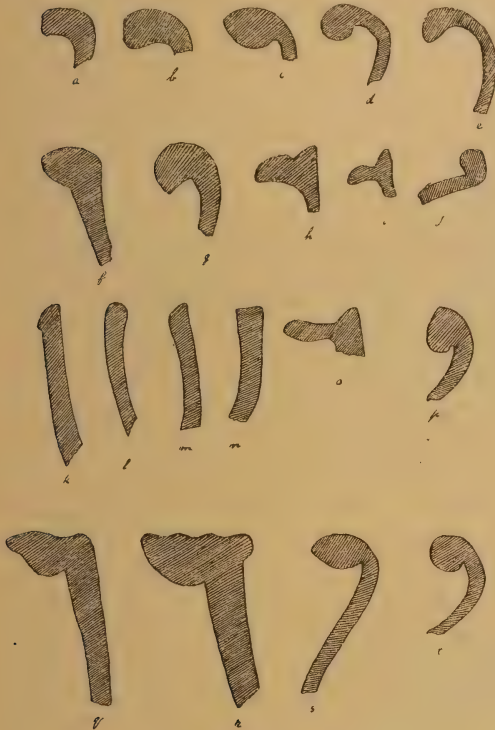 a b c d e
f g h i j
k l m n o p
q r s t